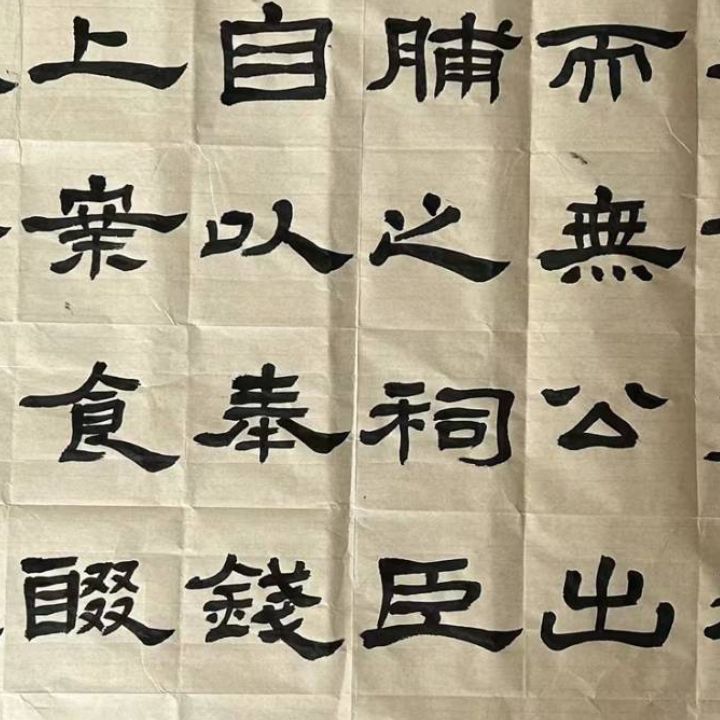 而無公出
脯之祠臣
自以奉錢
上案食醊